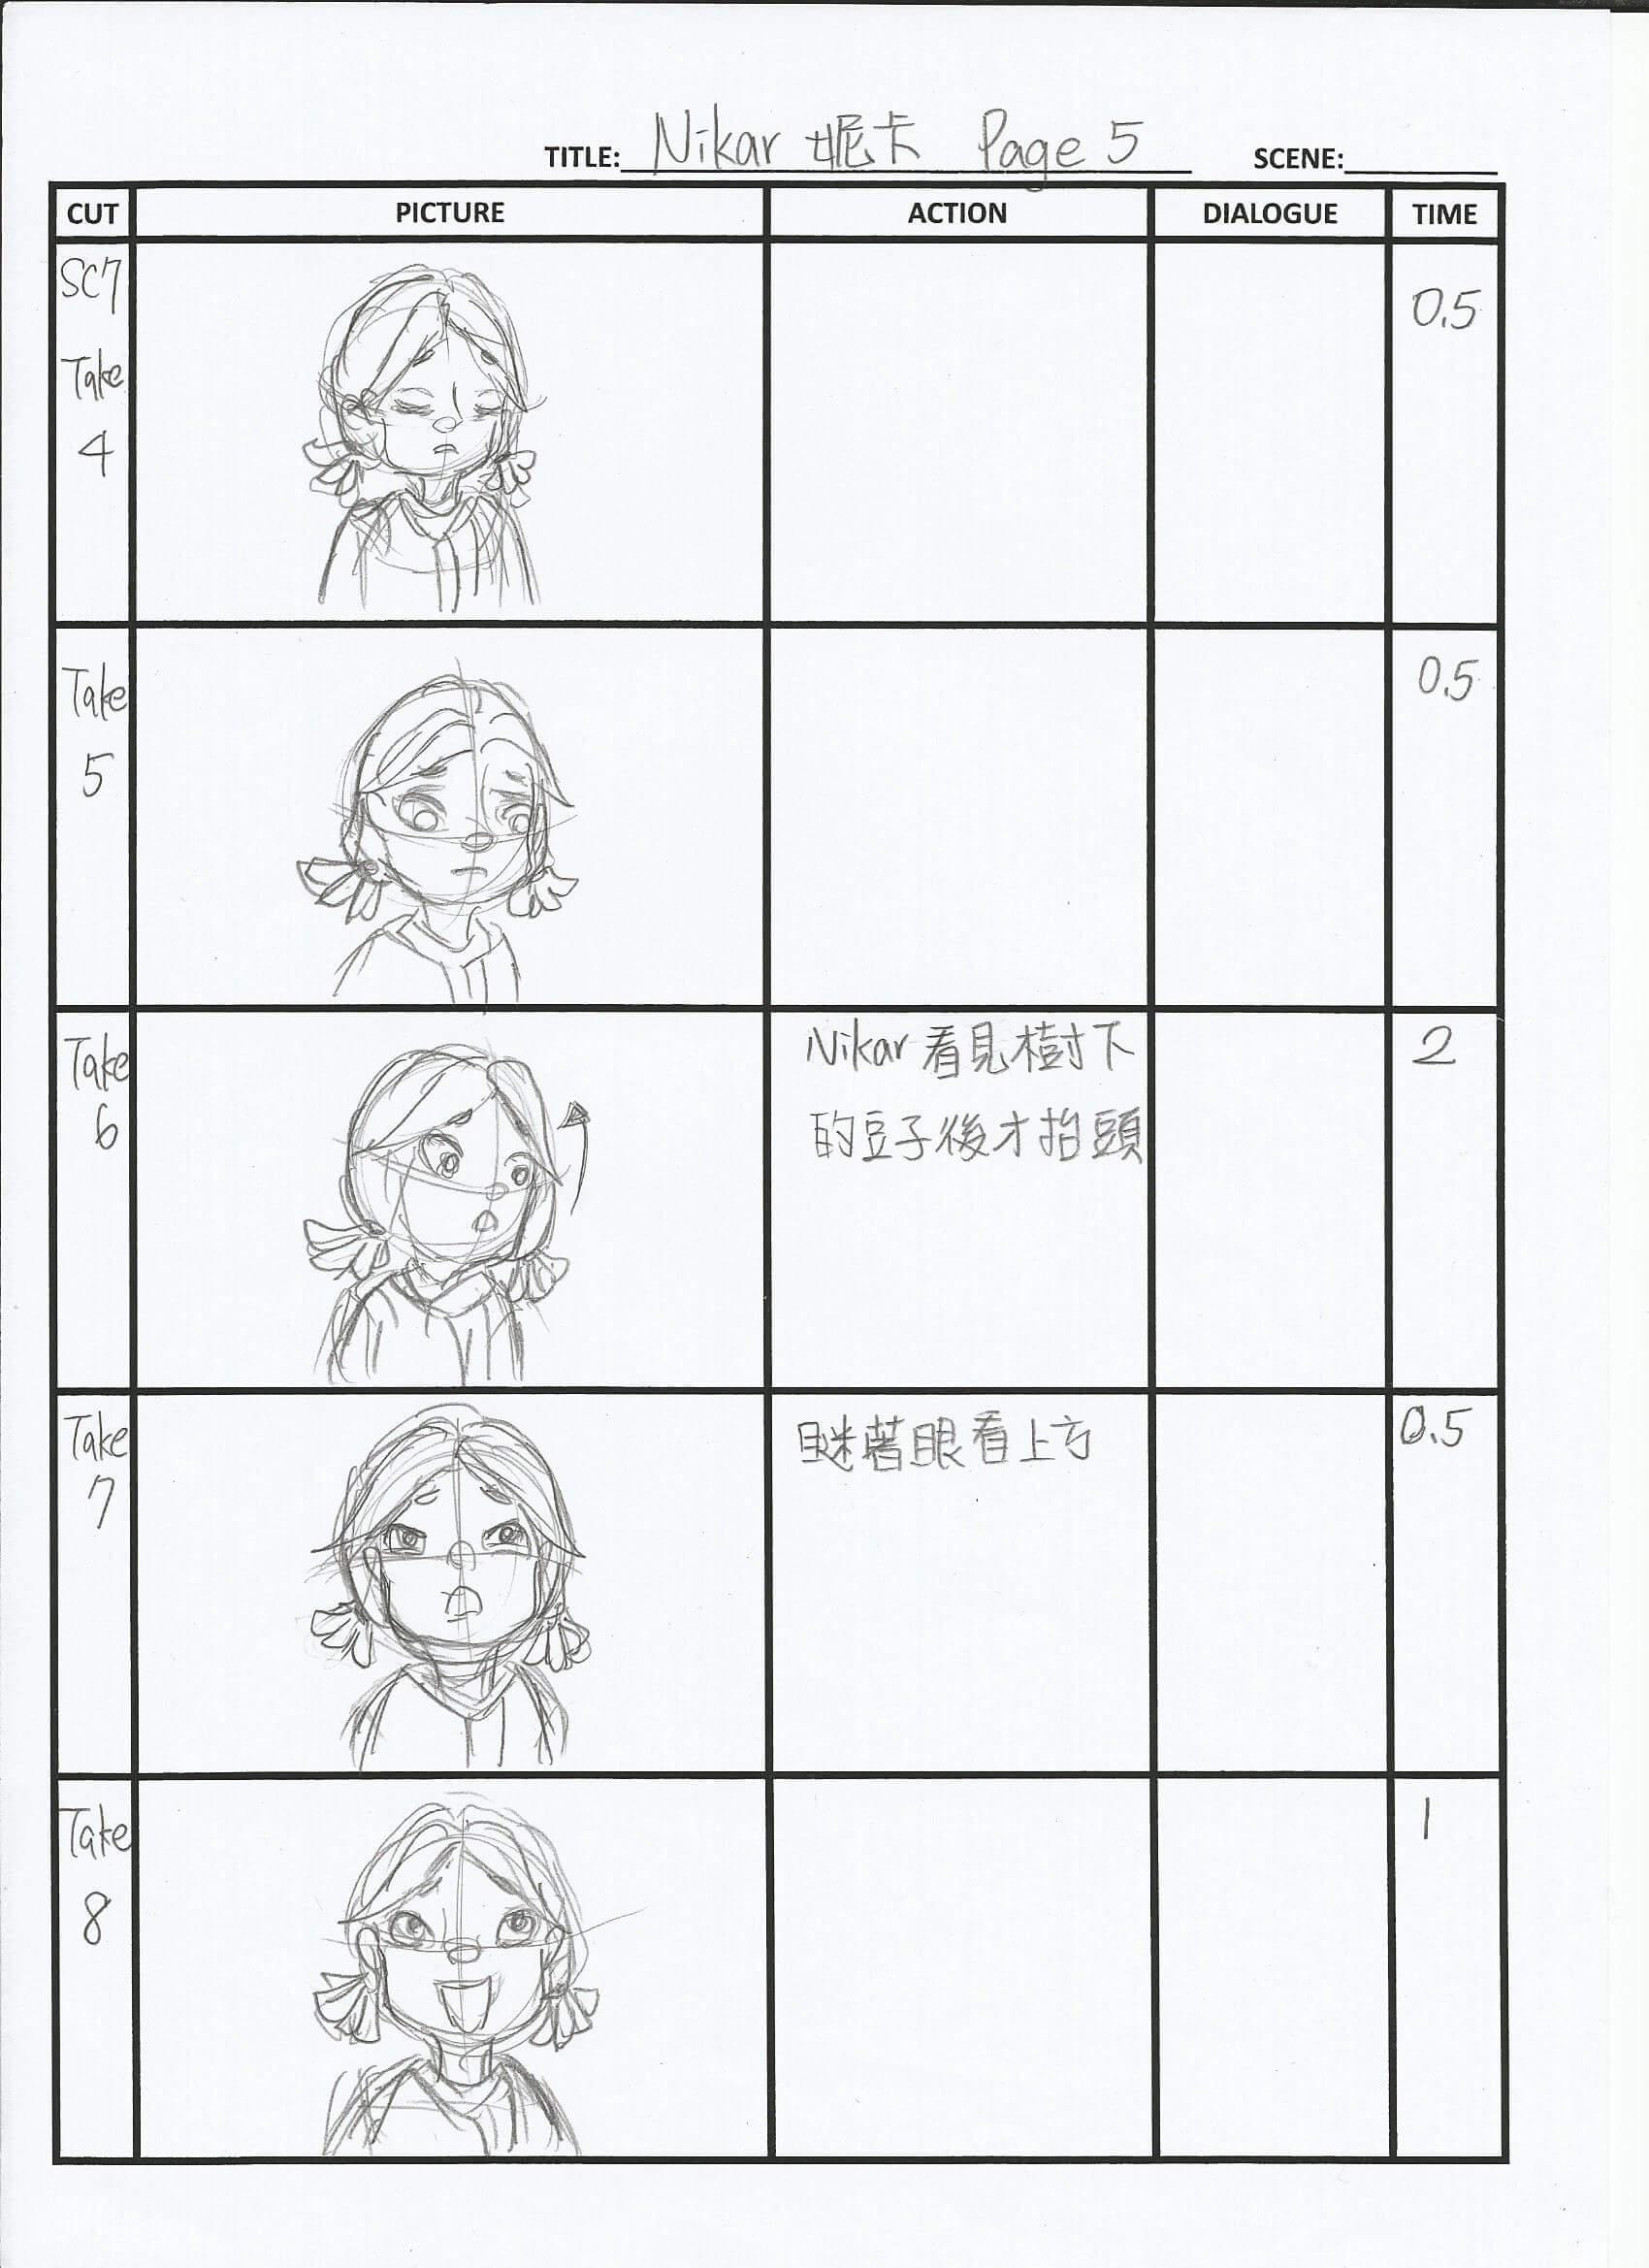 TITLE: Nikar 妮卡 Page 5 SCENE:
CUT PICTURE ACTION DIALOGUE TIME
SC7
Take
4
0.5
Take
5
0.5
Take
6
Nikar 看見樹下
的豆子後才抬頭
2
Take
7
瞇著眼看上方
0.5
Take
8
1